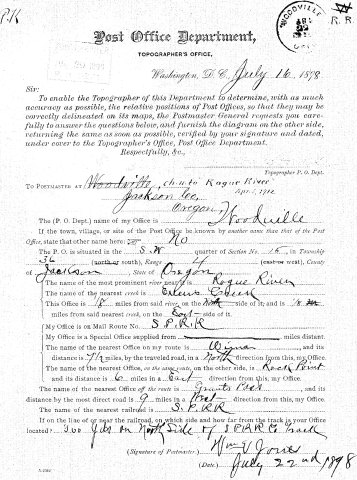 P.K
R.R.
WOODVILLE
Post Office Department,
TOPOGRAPHER'S OFFICE,
Washington, D. C., July 16, 1898
Sir:
To enable the Topographer of this Department to determine, with as much
accuracy as possible, the relative positions of Post Offices, so that they may be
correctly delineated on its maps, the Postmaster General requests you care-
fully to answer the questions below, and furnish the diagram on the other side,
returning the same as soon as possible, verified by your signature and dated,
under cover to the Topographer's Office, Post Office Department.
Respectfully, &c.,
Topographer P. O. Dept.
To POSTMASTER AT Woodville, ch. n. to Rogue River
Jackson Co, Apr. 5, 1912
Oregon,
The (P. O. Dept.) name of my Office is Woodville
If the town, village, or site of the Post Office be known by another name than that of the Post
Office, state that other name here: No
The P. O. is situated in the S. W. quarter of Section No. 15, in Township
36 (north or south), Range 4 (east or west), County
of Jackson, State of Oregon
The name of the most prominent river near it is Rogue River
The name of the nearest creek is Evans Creek
This Office is miles from said river, on the North side of it; and is
miles from said nearest creek, on the East side of it.
My Office is on Mail Route No. S.P.R.R
My Office is a Special Office supplied from miles distant.
The name of the nearest Office on my route is Wimer, and its
distance is 7½ miles, by the traveled road, in a North direction from this, my Office.
The name of the nearest Office, on the same route, on the other side, is Rock Point
and its distance is 6 miles in a East direction from this, my Office.
The name of the nearest Office off the route is Grants Pass, and its
distance by the most direct road is 9 miles in a West direction from this, my Office.
The name of the nearest railroad is S.P.R.R
If on the line of or near the railroad, on which side and how far from the track is your Office
located? 300 yds on North Side of S.P.R.R Co Track
(Signature of Postmaster) Wm V Jones
(Date) July 22nd 1898